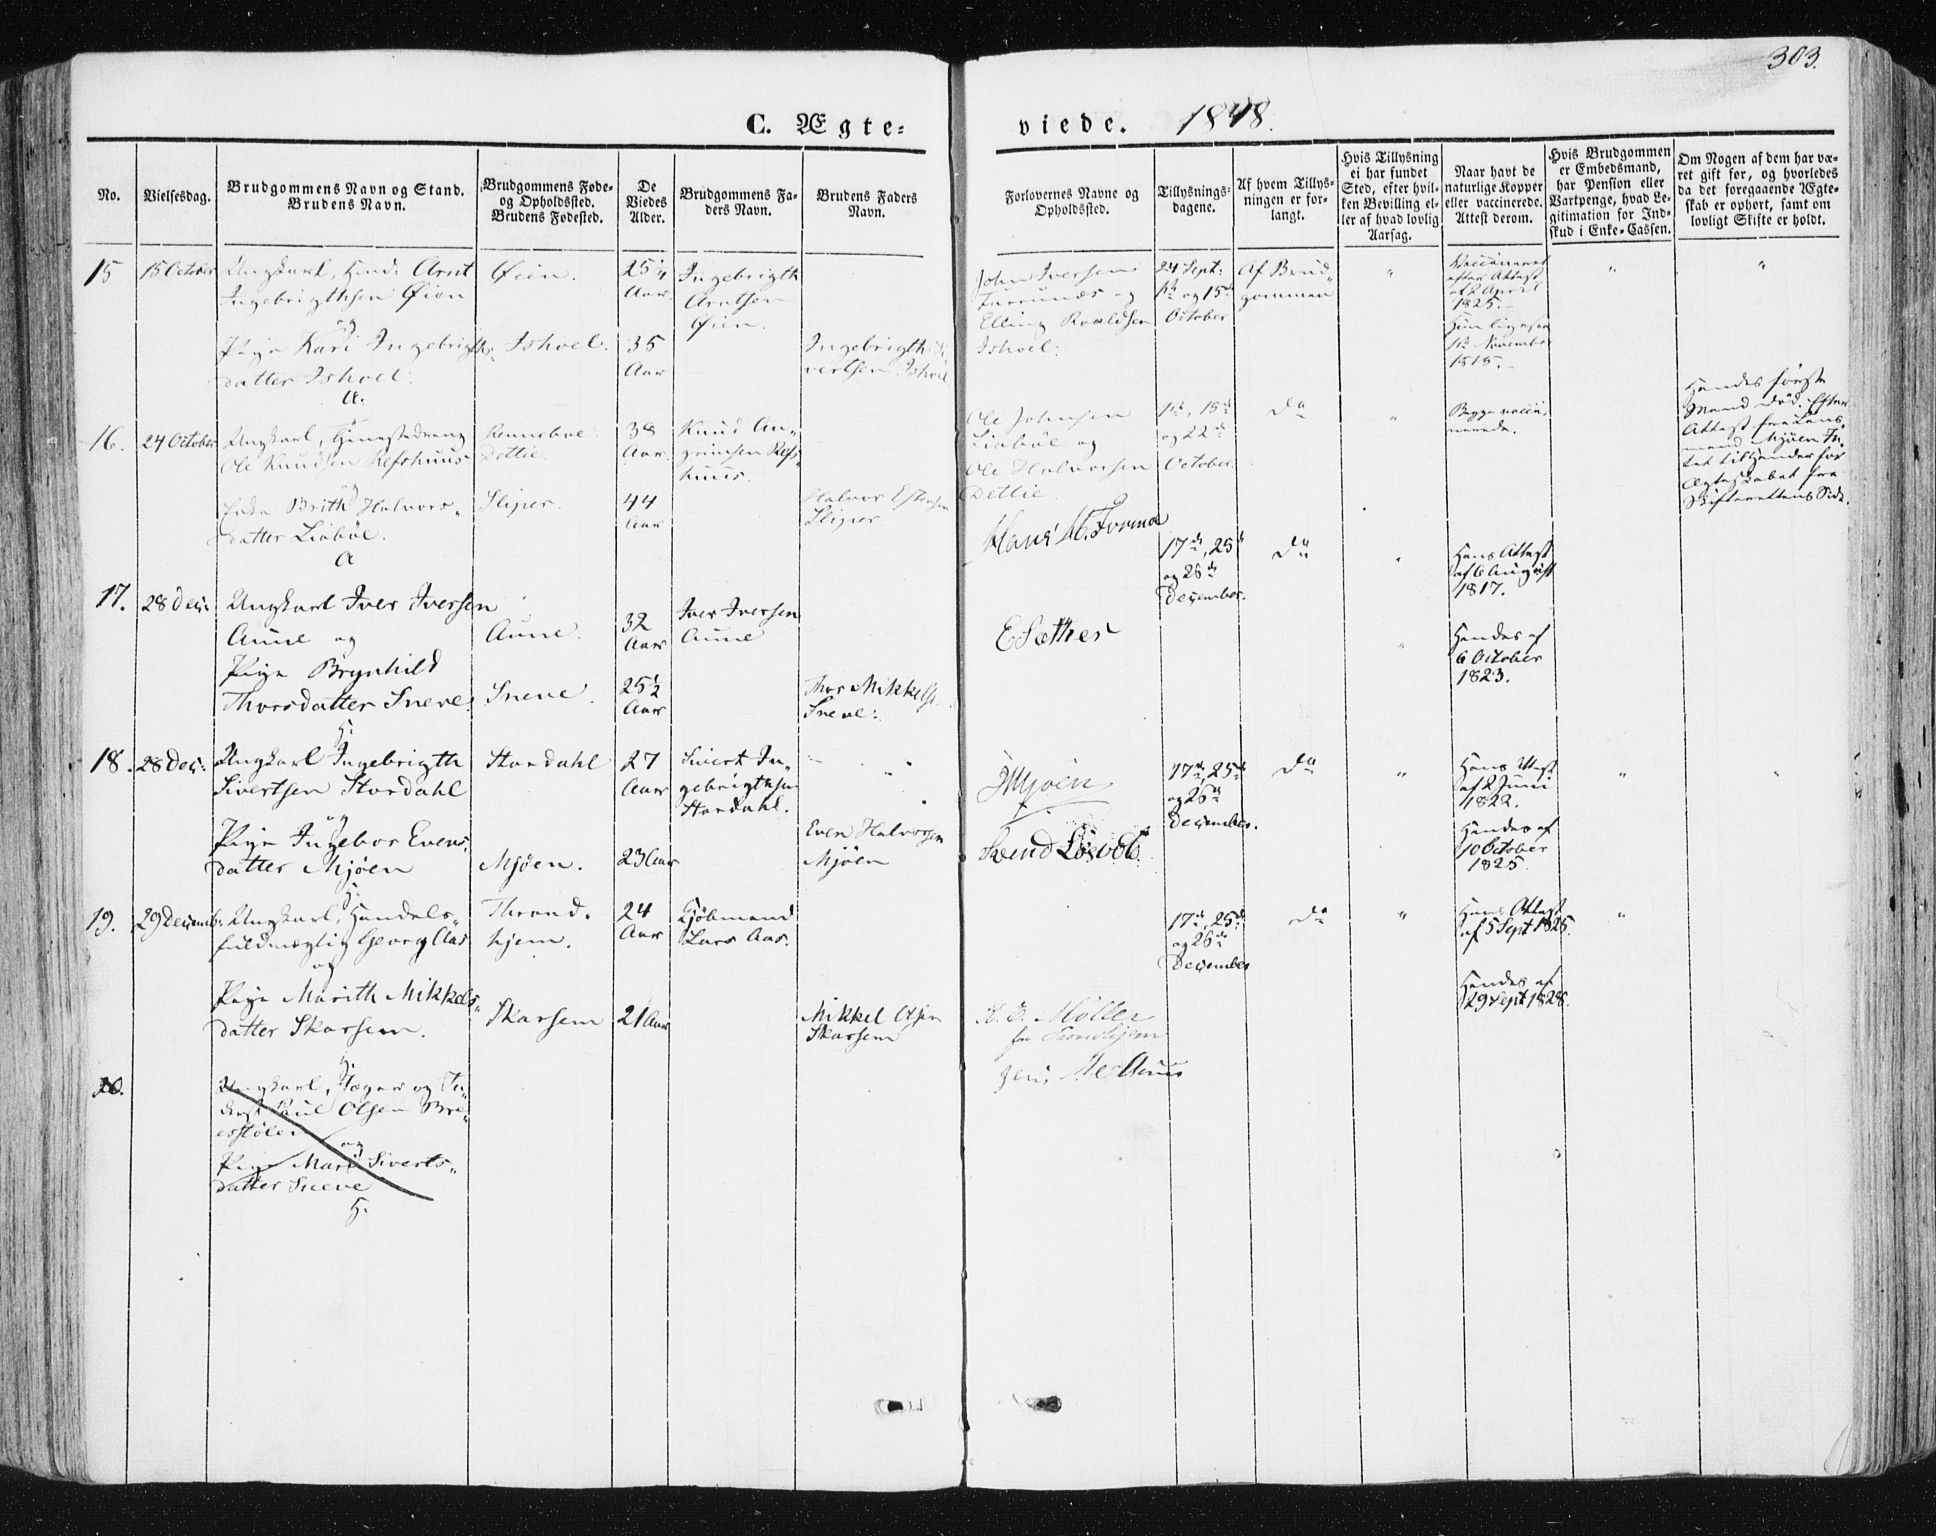 303.
C. Ægte-
viede. 1848.
No.
Vielsesdag.
Brudgommens Navn og Stand.
Brudens Navn.
Brudgommens Føde-
og Opholdssted.
Brudens Fødested.
De
Viedes
Alder.
Brudgommens Fa-
ders Navn.
Brudens Faders
Navn.
Forlovernes Navne og
Opholdssted.
Tillysnings-
dagene.
Af hvem Tillys-
ningen er for-
langt.
Hvis Tillysning
ei har fundet
Sted, efter hvil-
ken Bevilling el-
ler af hvad lovlig
Aarsag.
Naar havt de
naturlige Kopper
eller vaccinerede.
Attest derom.
Hvis Brudgommen
er Embedsmand,
har Pension eller
Vartpenge, hvad Le-
gitimation for Ind-
skud i Enke-Cassen.
Om Nogen af dem har væ-
ret gift før, og hvorledes
da det foregaaende Ægte-
skab er ophørt, samt om
lovligt Skifte er holdt.
15
15 October
Ungkarl, Arnt
Ingebrigthsen Øien
og
Pige Kari Ingebrigths-
datter Ishoel.
A.
Øien.
Ishoel.
25
Aar
35
Aar
Ingebrigth
Arntsen
Øien.
Ingebrigth Si-
vertsen Ishoel
John Iversen
og
Elling Roaldsen
Ishoel:
24 Sept:
1ste og 15de
October
Af Brud-
gommen
"
Vaccineret
efter Attest
af April
1825.
November
1818.
"
"
16.
24 October
Ungkarl, Tjenestedreng
Ole Knudsen Refshuus
og
Enke Brith Halvors-
datter Liabøe.
A
Renneboe
Dettie.
Sliper.
38
Aar.
44
Aar
Knud An-
grimsen Refs-
huus.
Halvor Estensen
Sliper.
Ole Johnsen
Liabøe og
Ole Halvorsen
Dettie.
1ste, 15de
og 22de
October.
Do
"
Begge vacci-
nerede.
Hendes første
Mand død. Efter
Attest fra Lens-
mand Mjøen In-
tet til Hinder for
Ægteskabet fra
Skifterettens Side.
17.
28 Dec:
Ungkarl Iver Iversen
Aune og
Pige Brynhild
Thorsdatter Sneve
H.
Aune.
Sneve.
32
Aar
25½
Aar
Iver Iversen
Aune
Thor Mikkels.
Sneve:
Hans M.
E Sæther
17de, 25de
og 26de
December.
Do
"
"
Hans Attest
af 6 August
1817.
Hendes af
6 October
1823.
18.
28 Dec:
Ungkarl Ingebrigth
Sivertsen Stordahl
og
Pige Ingebor Evens-
datter Mjøen
H.
Stordahl
Mjøen.
27
Aar
23 Aar
Sivert In-
gebrigthsen
Stordahl.
Even Halvorsen
Mjøen
Mjøen
Svend
17de, 25de
og 26de
December.
Do
"
Hans Attest
af 2 Juni
1822.
Hendes af
10 October
1825.
"
"
19.
29 Decemb:
Ungkarl, Handels-
fuldmægtig Georg Aas
og
Pige Marith Mikkels-
datter Skarsem.
H.
Thrond-
hjem.
Skarsem
24
Aar
21 Aar
Kjøbmand
Lars Aas.
Mikkel Olsen
Skarsem
Møller
fra Trondhjem
Jens
17de, 25de
og 26de
December
Do
"
Hans Attest
af 5 Sept 1825.
Hendes af
29 Sept 1828.
"
20.
Ungkarl, og In-
derst Paul Olsen Bre-
esstølen
og
Pige Mari Siverts-
datter Sneve
H.